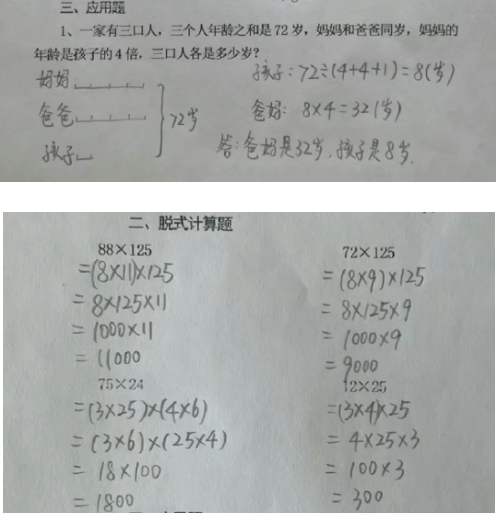 三、应用题
1、一家有三口人，三个人年龄之和是72岁，妈妈和爸爸同岁，妈妈的
年龄是孩子的4倍，三口人各是多少岁？
妈妈
爸爸
孩子
72岁
孩子：72÷(4+4+1)=8(岁)
爸妈：8×4=32(岁)
答：爸妈是32岁，孩子是8岁.
二、脱式计算题
88×125
=(8×11)×125
=8×125×11
=1000×11
=11000
72×125
=(8×9)×125
=8×125×9
=1000×9
=9000
75×24
=(3×25)×(4×6)
=(3×6)×(25×4)
=18×100
=1800
12×25
=(3×4)×25
=4×25×3
=100×3
=300